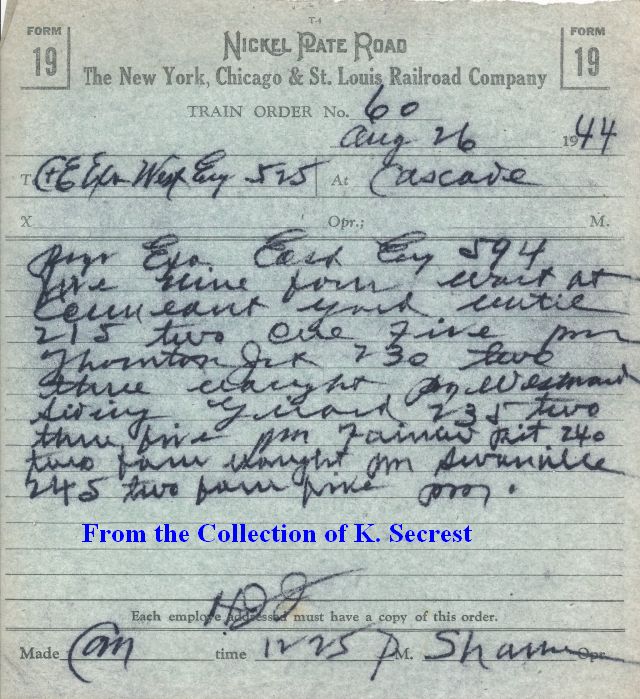 T-1
FORM 19
NICKEL PLATE ROAD
FORM 19
The New York, Chicago & St. Louis Railroad Company
TRAIN ORDER No. 60
Aug 26 1944
T C+E Exa West Eng 525 At Cascade
X Opr.; M.
Exa East Eng 594
five nine four wait at
Conneaut yard until
215 two one five pm
Thornton Jct 230 two
three naught pm Westward
siding Girard 235 two
three five pm pit 240
two four naught pm Swanville
245 two four five pm.
From the Collection of K. Secrest
Each employe addressed must have a copy of this order.
Made Com time 1225 P M. Opr.